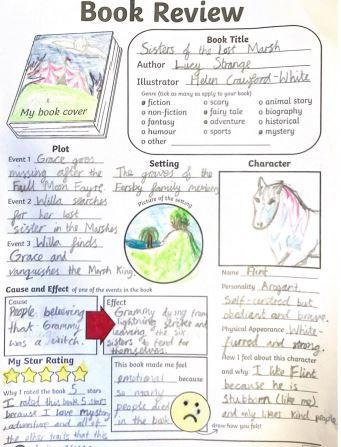 Book Review
My book cover
Book Title
Sisters of the Lost Marsh
Author Lucy Strange
Illustrator Helen Crawford-White
Genre (tick as many as apply to your book)
fiction
scary
animal story
non-fiction
fairy tale
biography
fantasy
adventure
historical
humour
sports
mystery
other
Plot
Event 1 Grace goes
missing after the
Full Moon Fayre.
Event 2 Willa searches
for her lost
sister in the Marshes
Event 3 Willa finds
Grace and
vanquishes the Marsh King.
Setting
The graves of the
Fersby family members
Picture of the setting
Character
Name Flint
Personality Arogant,
Self-centred but
obedient and brave.
Physical Appearance White-
furred and strong.
How I feel about this character
and why I like Flint
because he is
stubborn (like me)
and only likes kind people
Cause and Effect of one of the events in the book
Cause
People believing
that Grammy
was a witch.
Effect
Grammy dying from
lightning stricke and
leaving the six
sisters to fend for
themselves.
My Star Rating
Why I rated the book 5 stars
I rated this book 5 stars
because I love mystery
adventure and all of
the other traits that this
This book made me feel
emotional because
so many
people died
in the book.
draw how you felt!